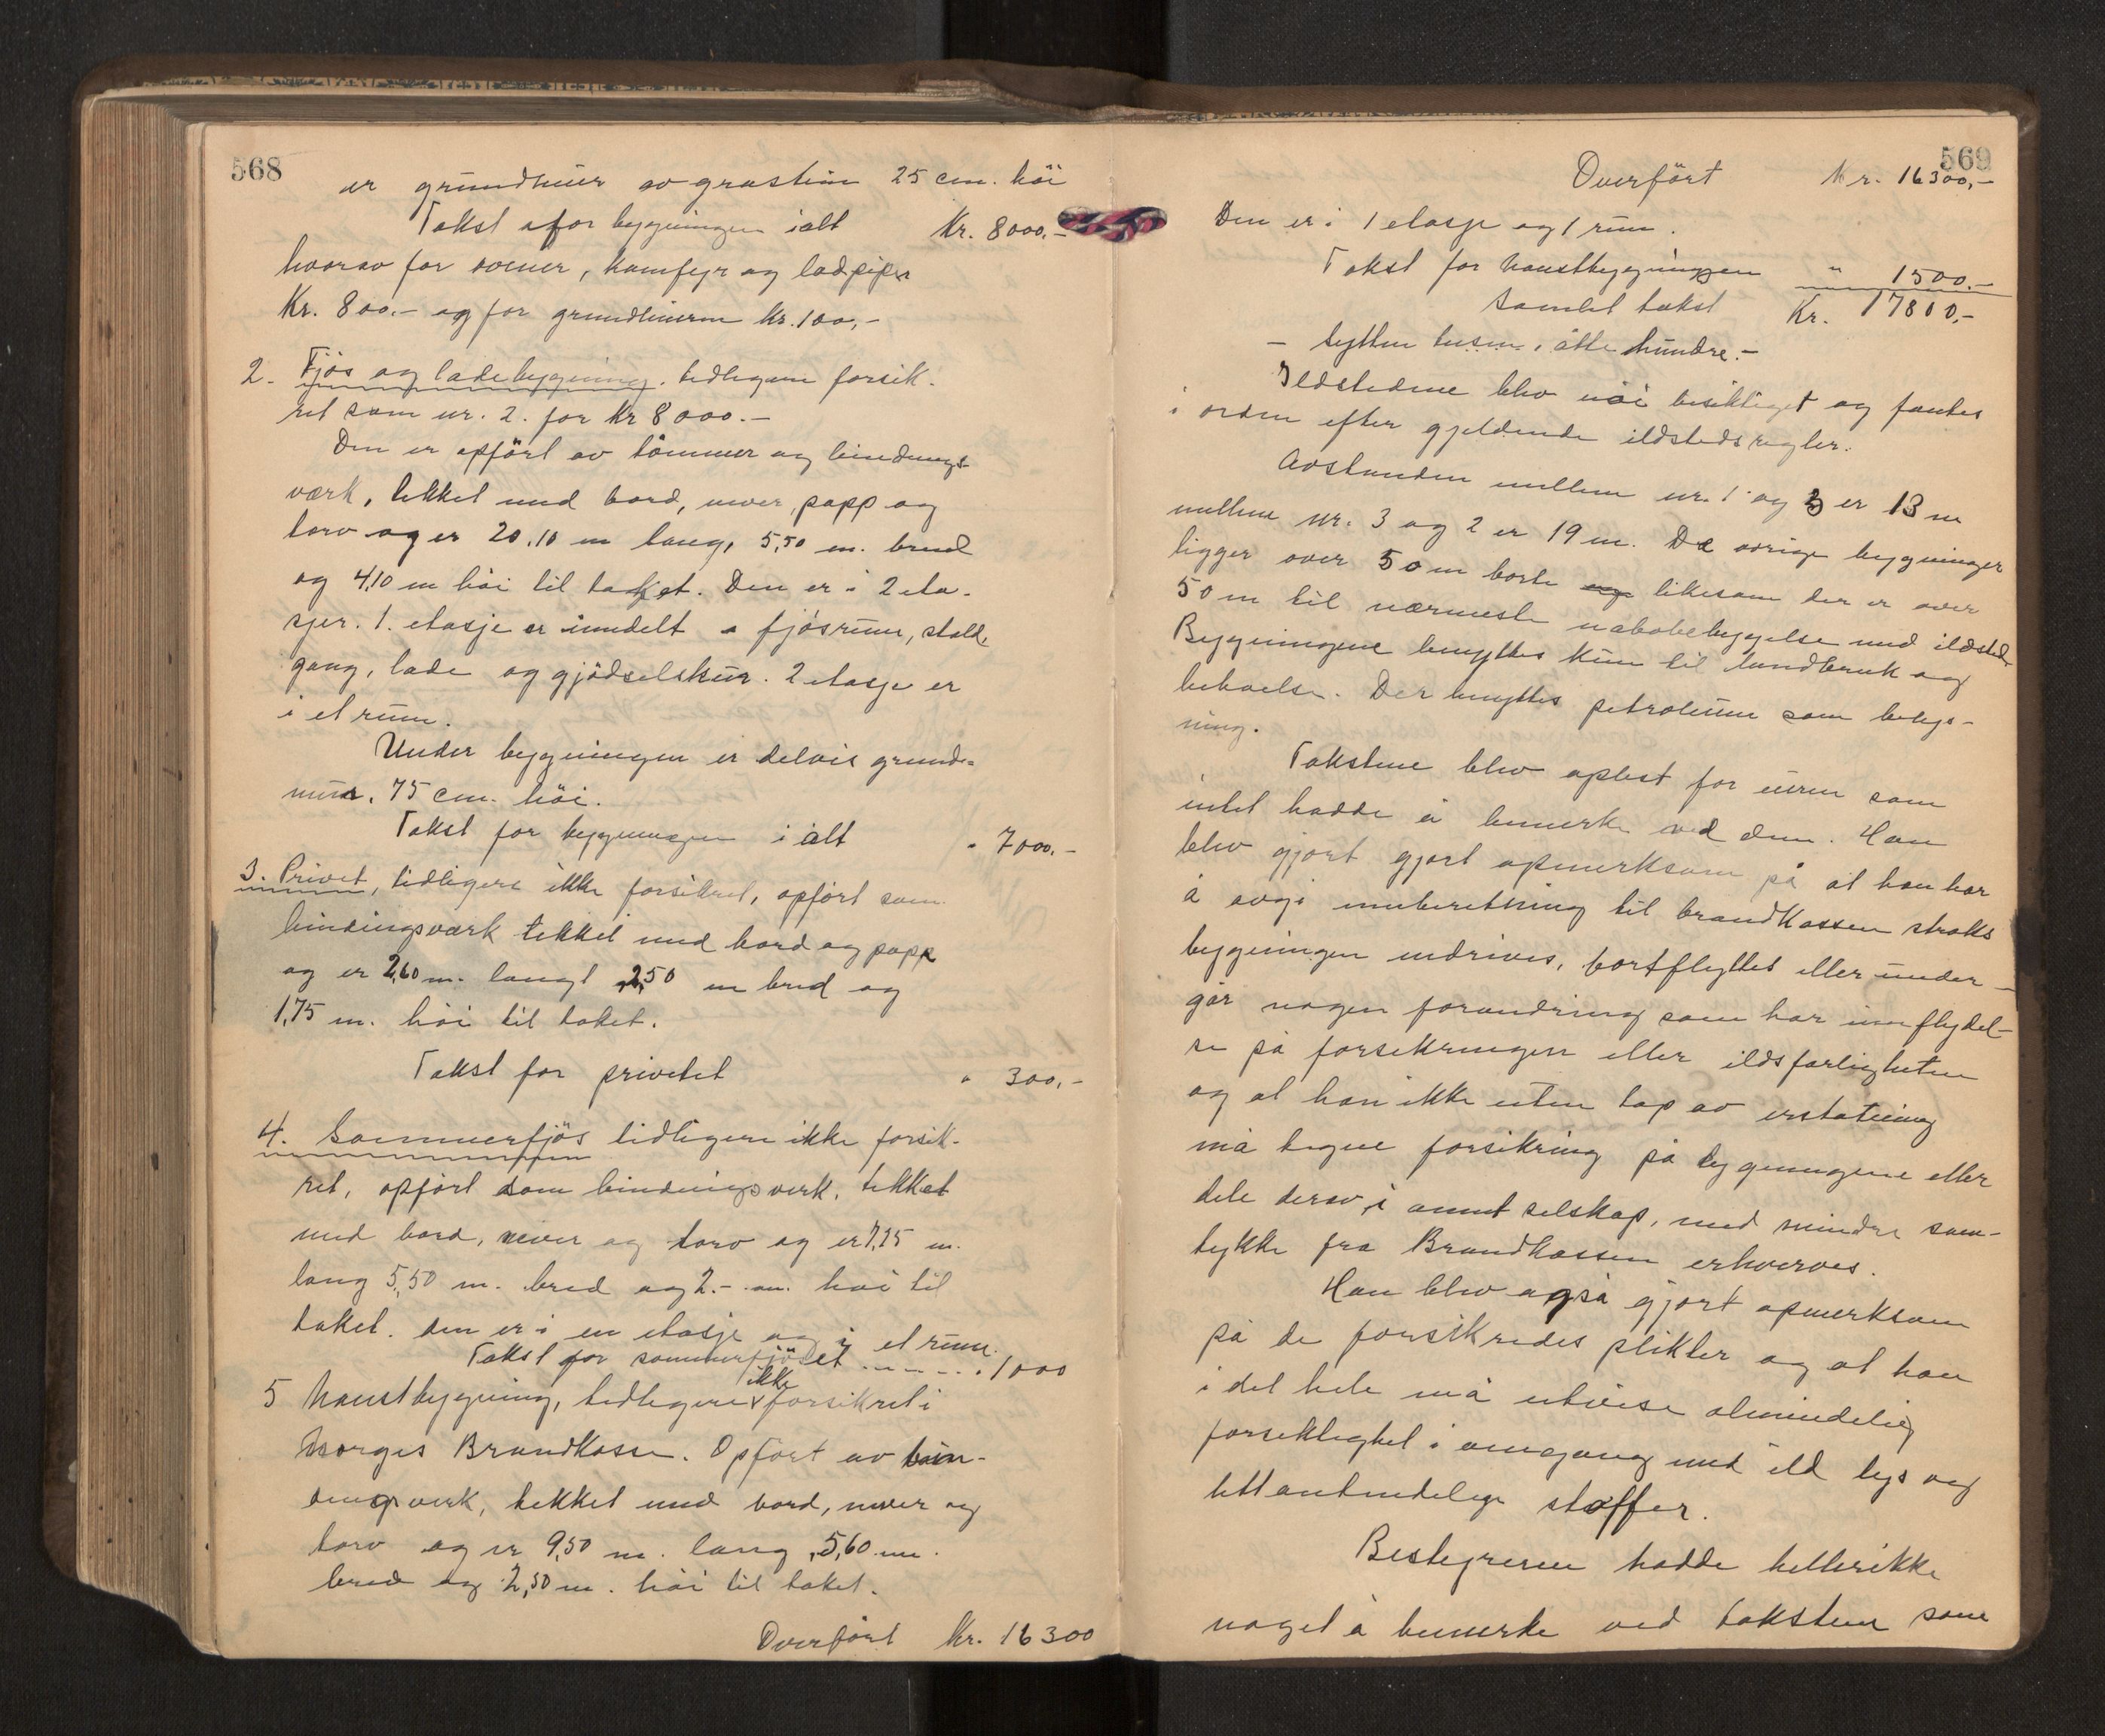 568
er grundmur av grasten 25 cm. höi
Takst for bygningen ialt Kr. 8000.-
hvorav for ovner, komfyr og ladpiper
Kr. 800.- og for grundmuren kr. 100,-
2. Fjös og ladebygning. tidligere forsik-
ret som nr. 2. for Kr 8000.-
Den er opfört av tömmer og bindings-
værk, tekket med bord, never, papp og
torv og er 20,10 m lang, 5,50 m. bred
og 4,10 m höi til taket. Den er i 2 eta-
sjer. 1. etasje er inndelt fjösrum, stald,
gang, lade og gjödselskur. 2 etasje er
i et rum.
Under bygningen er delvis grund-
mur, 75 cm. höi.
Takst for bygningen i alt " 7000.-
3. Privet, tidligere ikke forsikret, opfört som
bindingsværk tekket med bord og papp
og er 2,60 m. langt 2,50 m bred og
1,75 m. höi til taket.
Takst for privetet " 300,-
4. Sommerfjös tidligere ikke forsik-
ret, opfört som bindingsverk, tekket
med bord, never og torv og er 7,25 m.
lang 5,50 m. bred og 2.- m. höi til
taket. den er i en etasje og i et rum.
Takst for sommerfjöset - - - - " 1000
5 Naustbygning, tidligere ikke forsikret i
Norges Brandkasse. Opfört av bin-
dingsverk, tekket med bord, never og
torv og er 9,50 m. lang, 5,60 m.
bred og 2,50 m. höi til taket.
Overfört Kr. 16300
569
Overfört Kr. 16300,-
Den er i 1 etasje og 1 rum.
Takst for Naustbygningen " 1500.-
Samlet takst Kr. 17800,-
- sytten tusen, åtte hundre.-
Ildstedene blev nöie besiktiget og fantes
i orden efter gjeldende ildstedsregler.
Avstanden mellem nr. 1 og 3 er 13 m
mellem Nr. 3 og 2 er 19 m. De övrige bygninger
ligger over 50 m borte og likesom der er over
50 m til nærmeste nabobebyggelse med ildsted.
Bygningene benyttes kun til landbruk og
beboelse. Der benyttes petroleum som belys-
ning.
Takstene blev oplest for eieren som
intet hadde å bemerke ved dem. Han
blev gjort gjort opmerksom på at han har
å avgi innberetning til brandkassen straks
bygningen nedrives, bortflyttes eller under-
går nogen forandring som har innflydel-
se på forsikringen eller ildsfarligheten
og at han ikke uten tap av erstatning
må tegne forsikring på bygningene eller
dele derav, i annet selskap, med mindre sam-
tykke fra Brandkassen erhverves.
Han blev også gjort opmerksom
på de forsikredes plikter og at han
i det hele må utvise almindelig
forsiktighet i omgang med ild lys og
lettantendelige stoffer.
Bestyreren hadde hellerikke
noget å bemerke ved taksten som